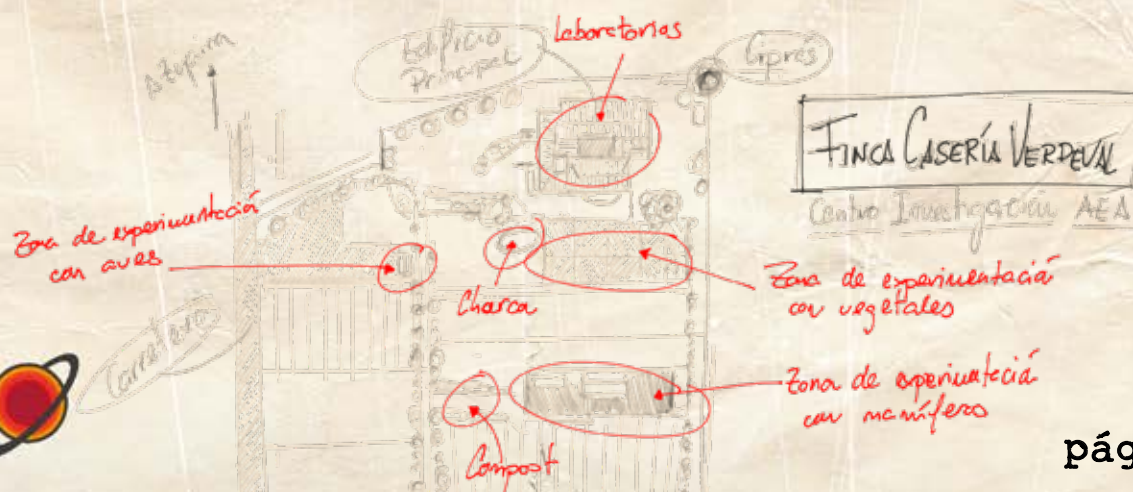 Laboratorios
Edificio
Principal
Ciprés
A Zufirra
FINCA CASERÍA VERDEVAL
Centro Investigación AEA
Zona de experimentación
con aves
Charca
Zona de experimentación
con vegetales
Carretera
Zona de experimentación
con mamífero
Compost
pág